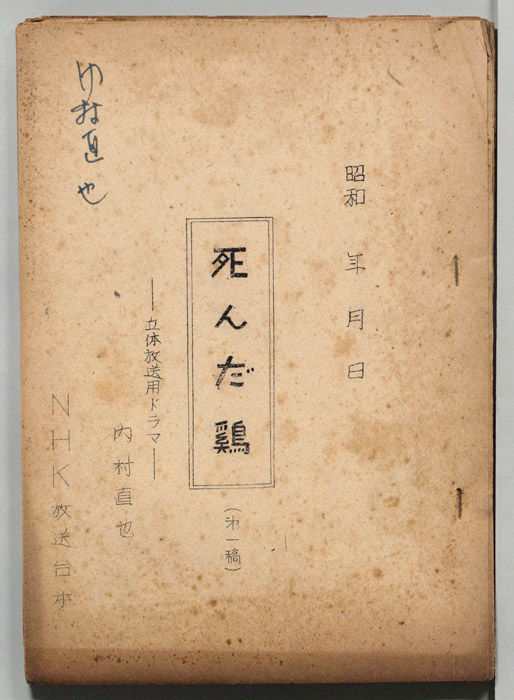 昭和 年 月 日
死んだ鶏
(第一稿)
―立体放送用ドラマ―
内村直也
NHK放送台本
直也